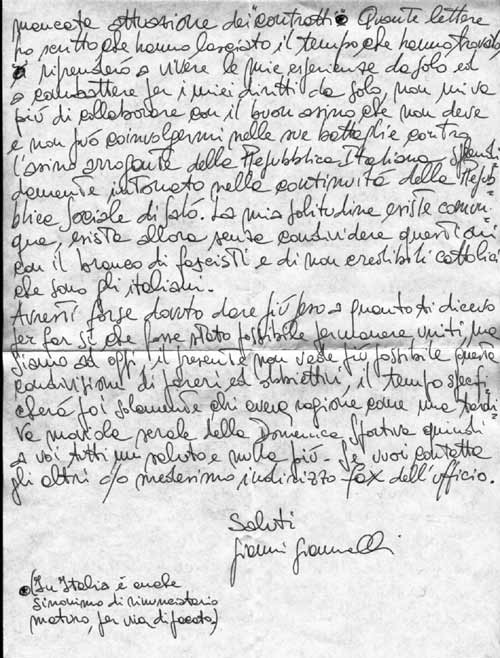 mancata attuazione dei "contratti" Quante lettere
ho scritto che hanno lasciato il tempo che hanno trovato,
riprenderò a vivere le mie esperienze da solo ed
a combattere per i miei diritti da solo, non mi va
più di collaborare con il buon asino che non deve
e non può coinvolgermi nelle sue battaglie contro
l'asino arrogante della Repubblica Italiana,
intonato nella continuità della Repub=
blica Sociale di Salò. La mia solitudine esiste comun=
que, esista allora senza condividere questi
con il branco di fascisti e di non credibili cattolici
che sono gli italiani.
Avresti forse dovuto dare più peso a quanto ti dicevo
per far sì che fosse stato possibile permanere uniti, ma
siamo ad oggi, il presente non vede più possibile questa
condivisione di pareri ed obbiettivi, il tempo specifi=
cherà poi solamente chi aveva ragione come una tardi=
va moviola serale della Domenica Sportiva quindi
a voi tutti un saluto e nulla più - Se vuoi contatta
gli altri c/o medesimo indirizzo fax dell'ufficio.
Saluti
Gianni Giannelli
(In Italia è anche
sinonimo di rinunciatario
, per via di)